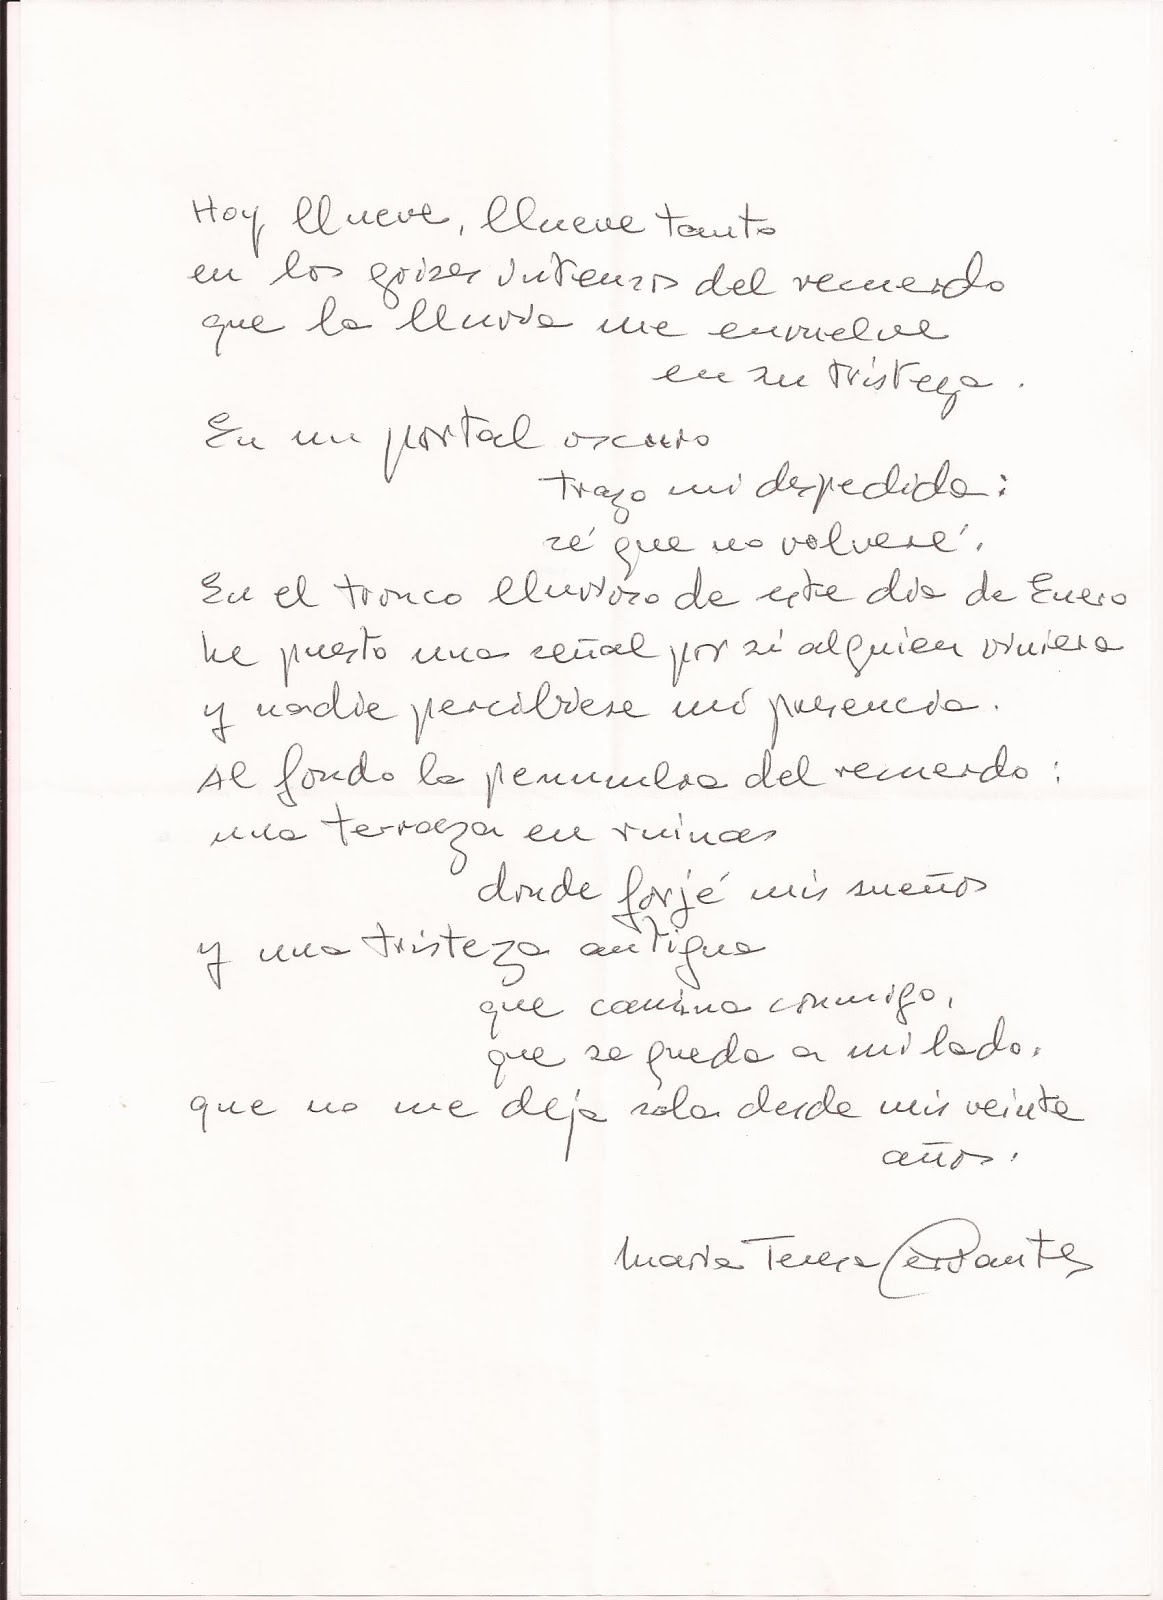 Hoy llueve, llueve tanto
en los grises intensos del recuerdo
que la lluvia me envuelve
en su tristeza.
En un portal oscuro
trazo mi despedida:
sé que no volveré.
En el tronco lluvioso de este día de Enero
he puesto una señal por si alguien viniera
y nadie percibiese mi presencia.
Al fondo la penumbra del recuerdo:
una terraza en ruinas
donde forjé mis sueños
y una tristeza antigua
que camina conmigo,
que se queda a mi lado,
que no me deja sola desde mis veinte
años.
María Teresa Cervantes